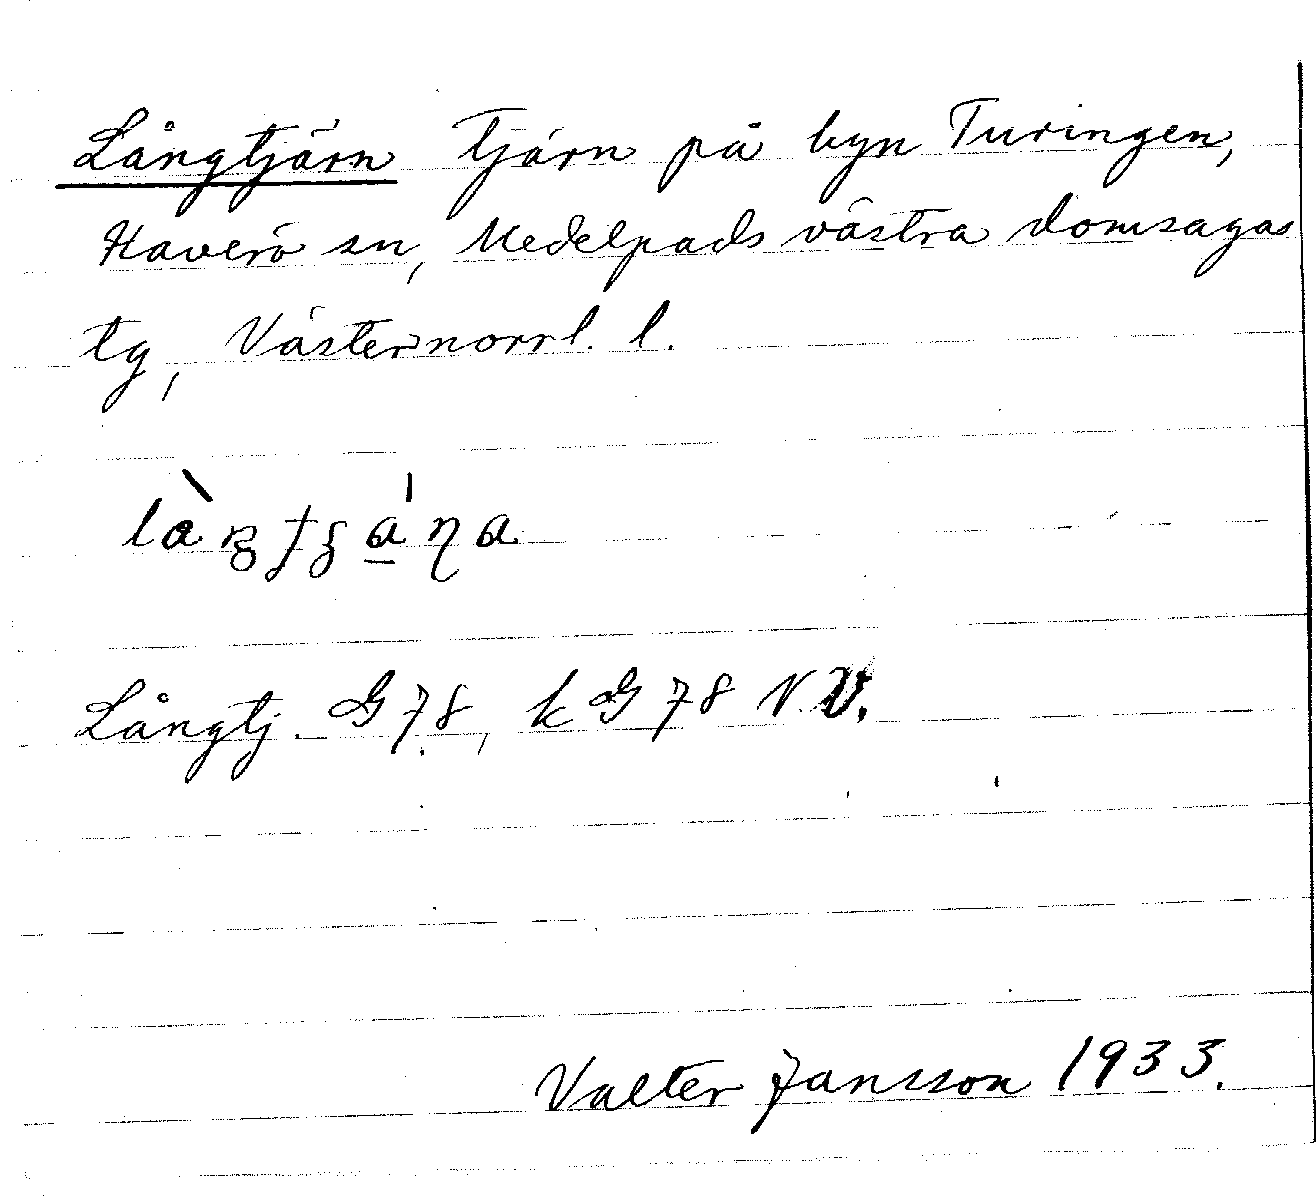 Långtjärn Tjärn på byn Turingen,
Haverö sn, Medelpads västra domsagas
tg, Västernorrl. l.
Långtj. G 78, k G 78 N.V.
Valter Jansson 1933.